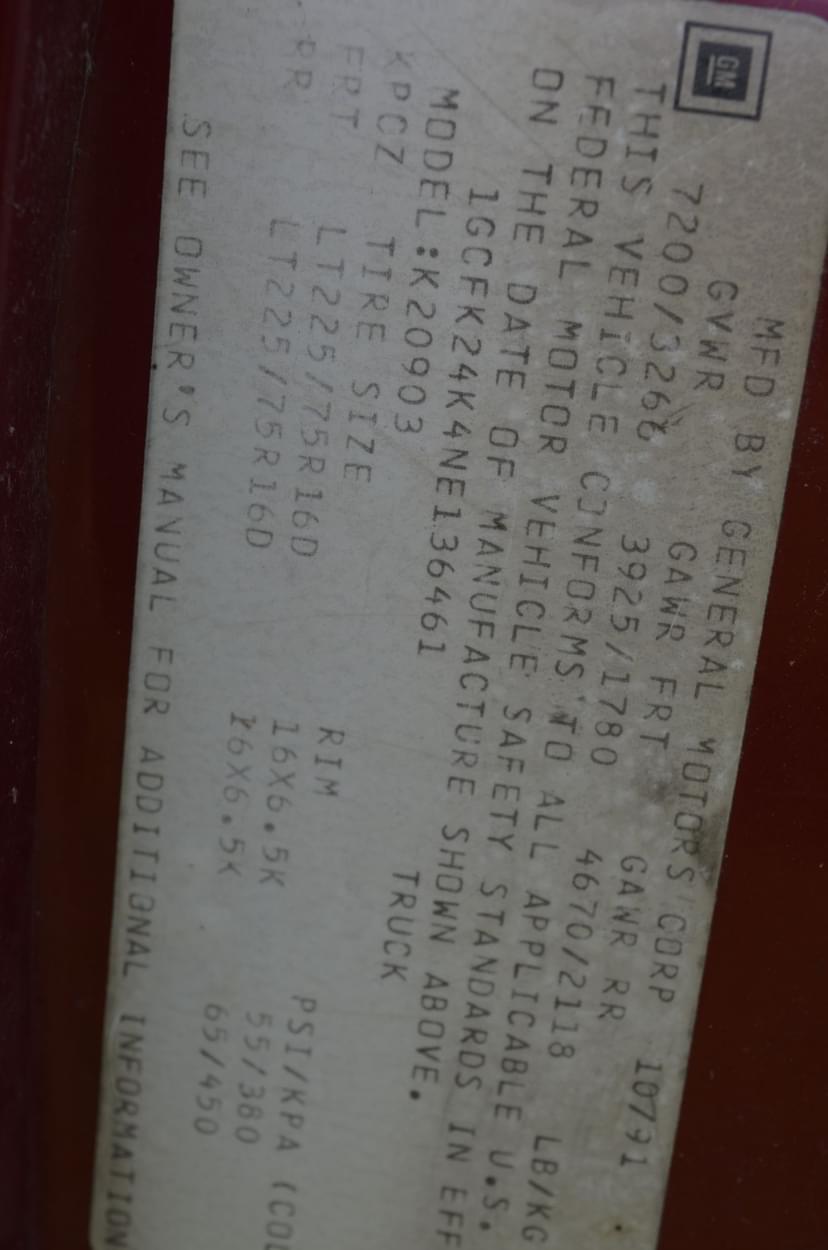 GM
MFD BY GENERAL MOTORS CORP 10791
GVWR GAWR FRT GAWR RR
7200/3266 3925/1780 4670/2118 LB/KG
THIS VEHICLE CONFORMS TO ALL APPLICABLE U.S.
FEDERAL MOTOR VEHICLE SAFETY STANDARDS IN EFF
ON THE DATE OF MANUFACTURE SHOWN ABOVE.
1GCFK24K4NE136461 TRUCK
MODEL:K20903
KPCZ TIRE SIZE RIM PSI/KPA (COL
FRT LT225/75R16D 16X6.5K 55/380
RR LT225/75R16D 16X6.5K 65/450
SEE OWNER'S MANUAL FOR ADDITIONAL INFORMATION